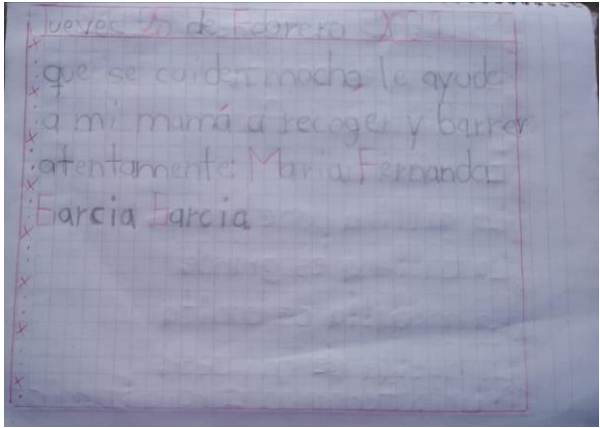 Jueves de Febrero
que se caiden mocho le ayude
a mi mamá a recoger y barrer
atentamente: Maria Fernanda
Garcia Garcia